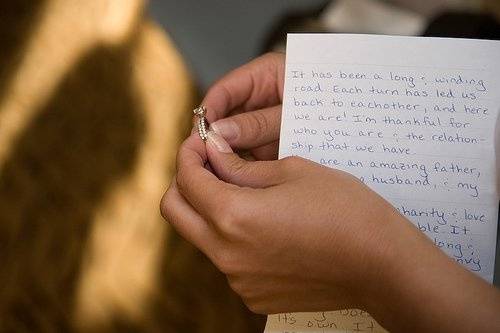 It has been a long & winding
road. Each turn has led us
back to eachother, and here
we are! I'm thankful for
who you are & the relation-
ship that we have.
are an amazing father,
a husband, & my
charity & love
ble. It
long &
envy
it's own. I